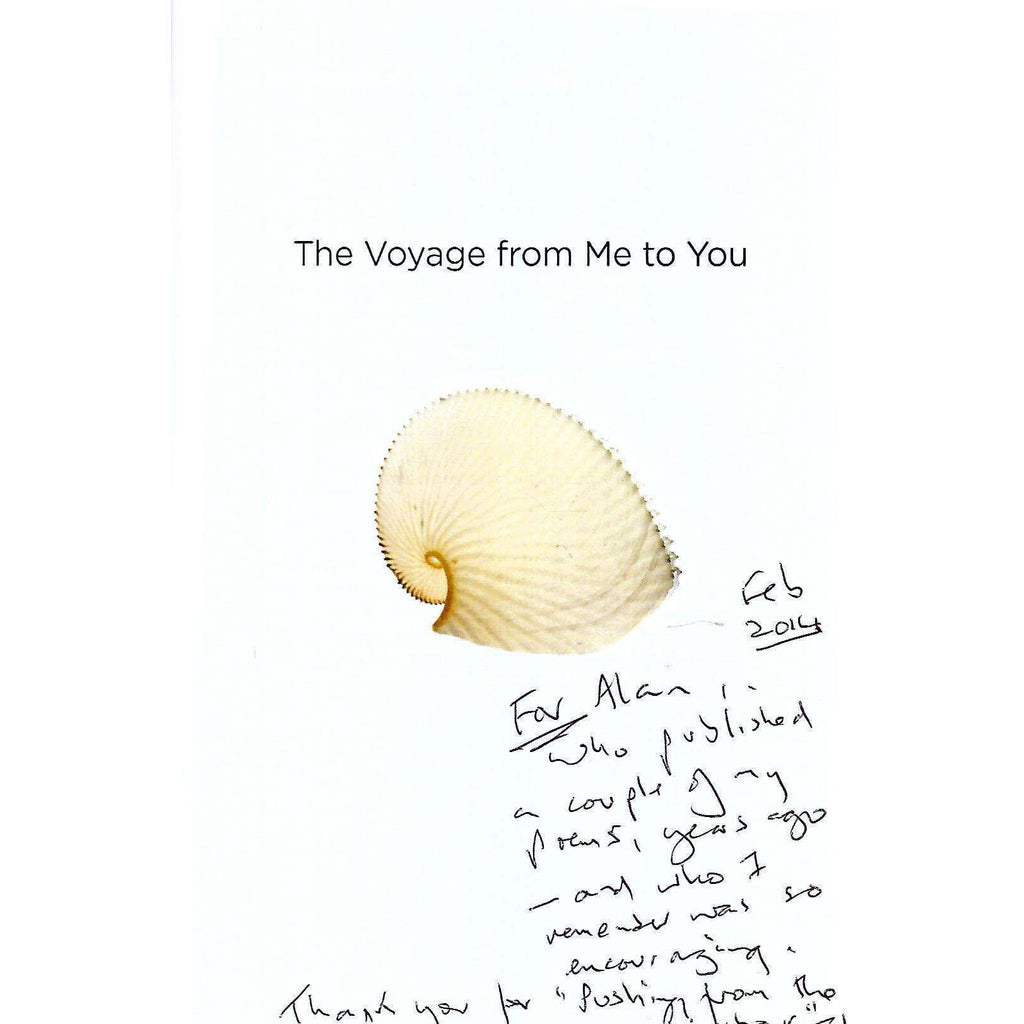 The Voyage from Me to You
Feb
2014
For Alan,
who published
a couple of my
poems, years ago
— and who I
remember was so
encouraging.
Thank you for "Pushing from the